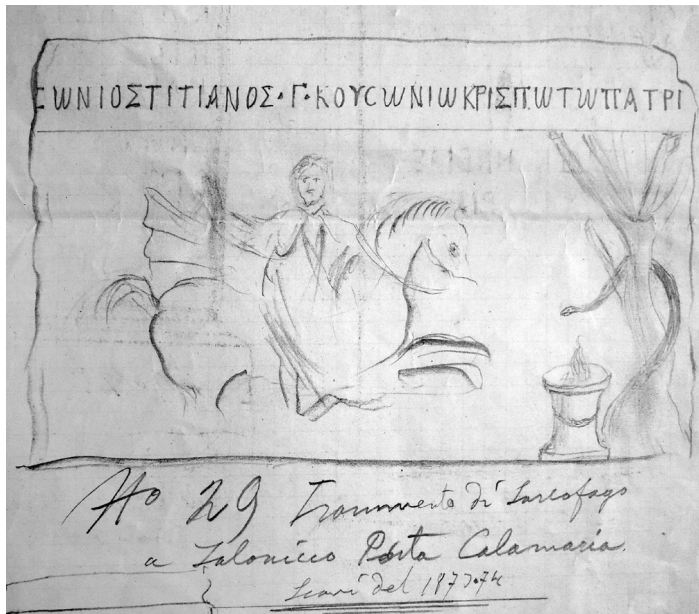 ϹωΝΙΟΣΤΙΤΙΑΝΟΣ·Γ·ΚΟΥϹωΝΙωΚΡΙΣΠωΤωΠΑΤΡΙ
No 29 Frammento di Sarcofago
a Salonicco Porta Calamaria.
Scavi del 1873-74